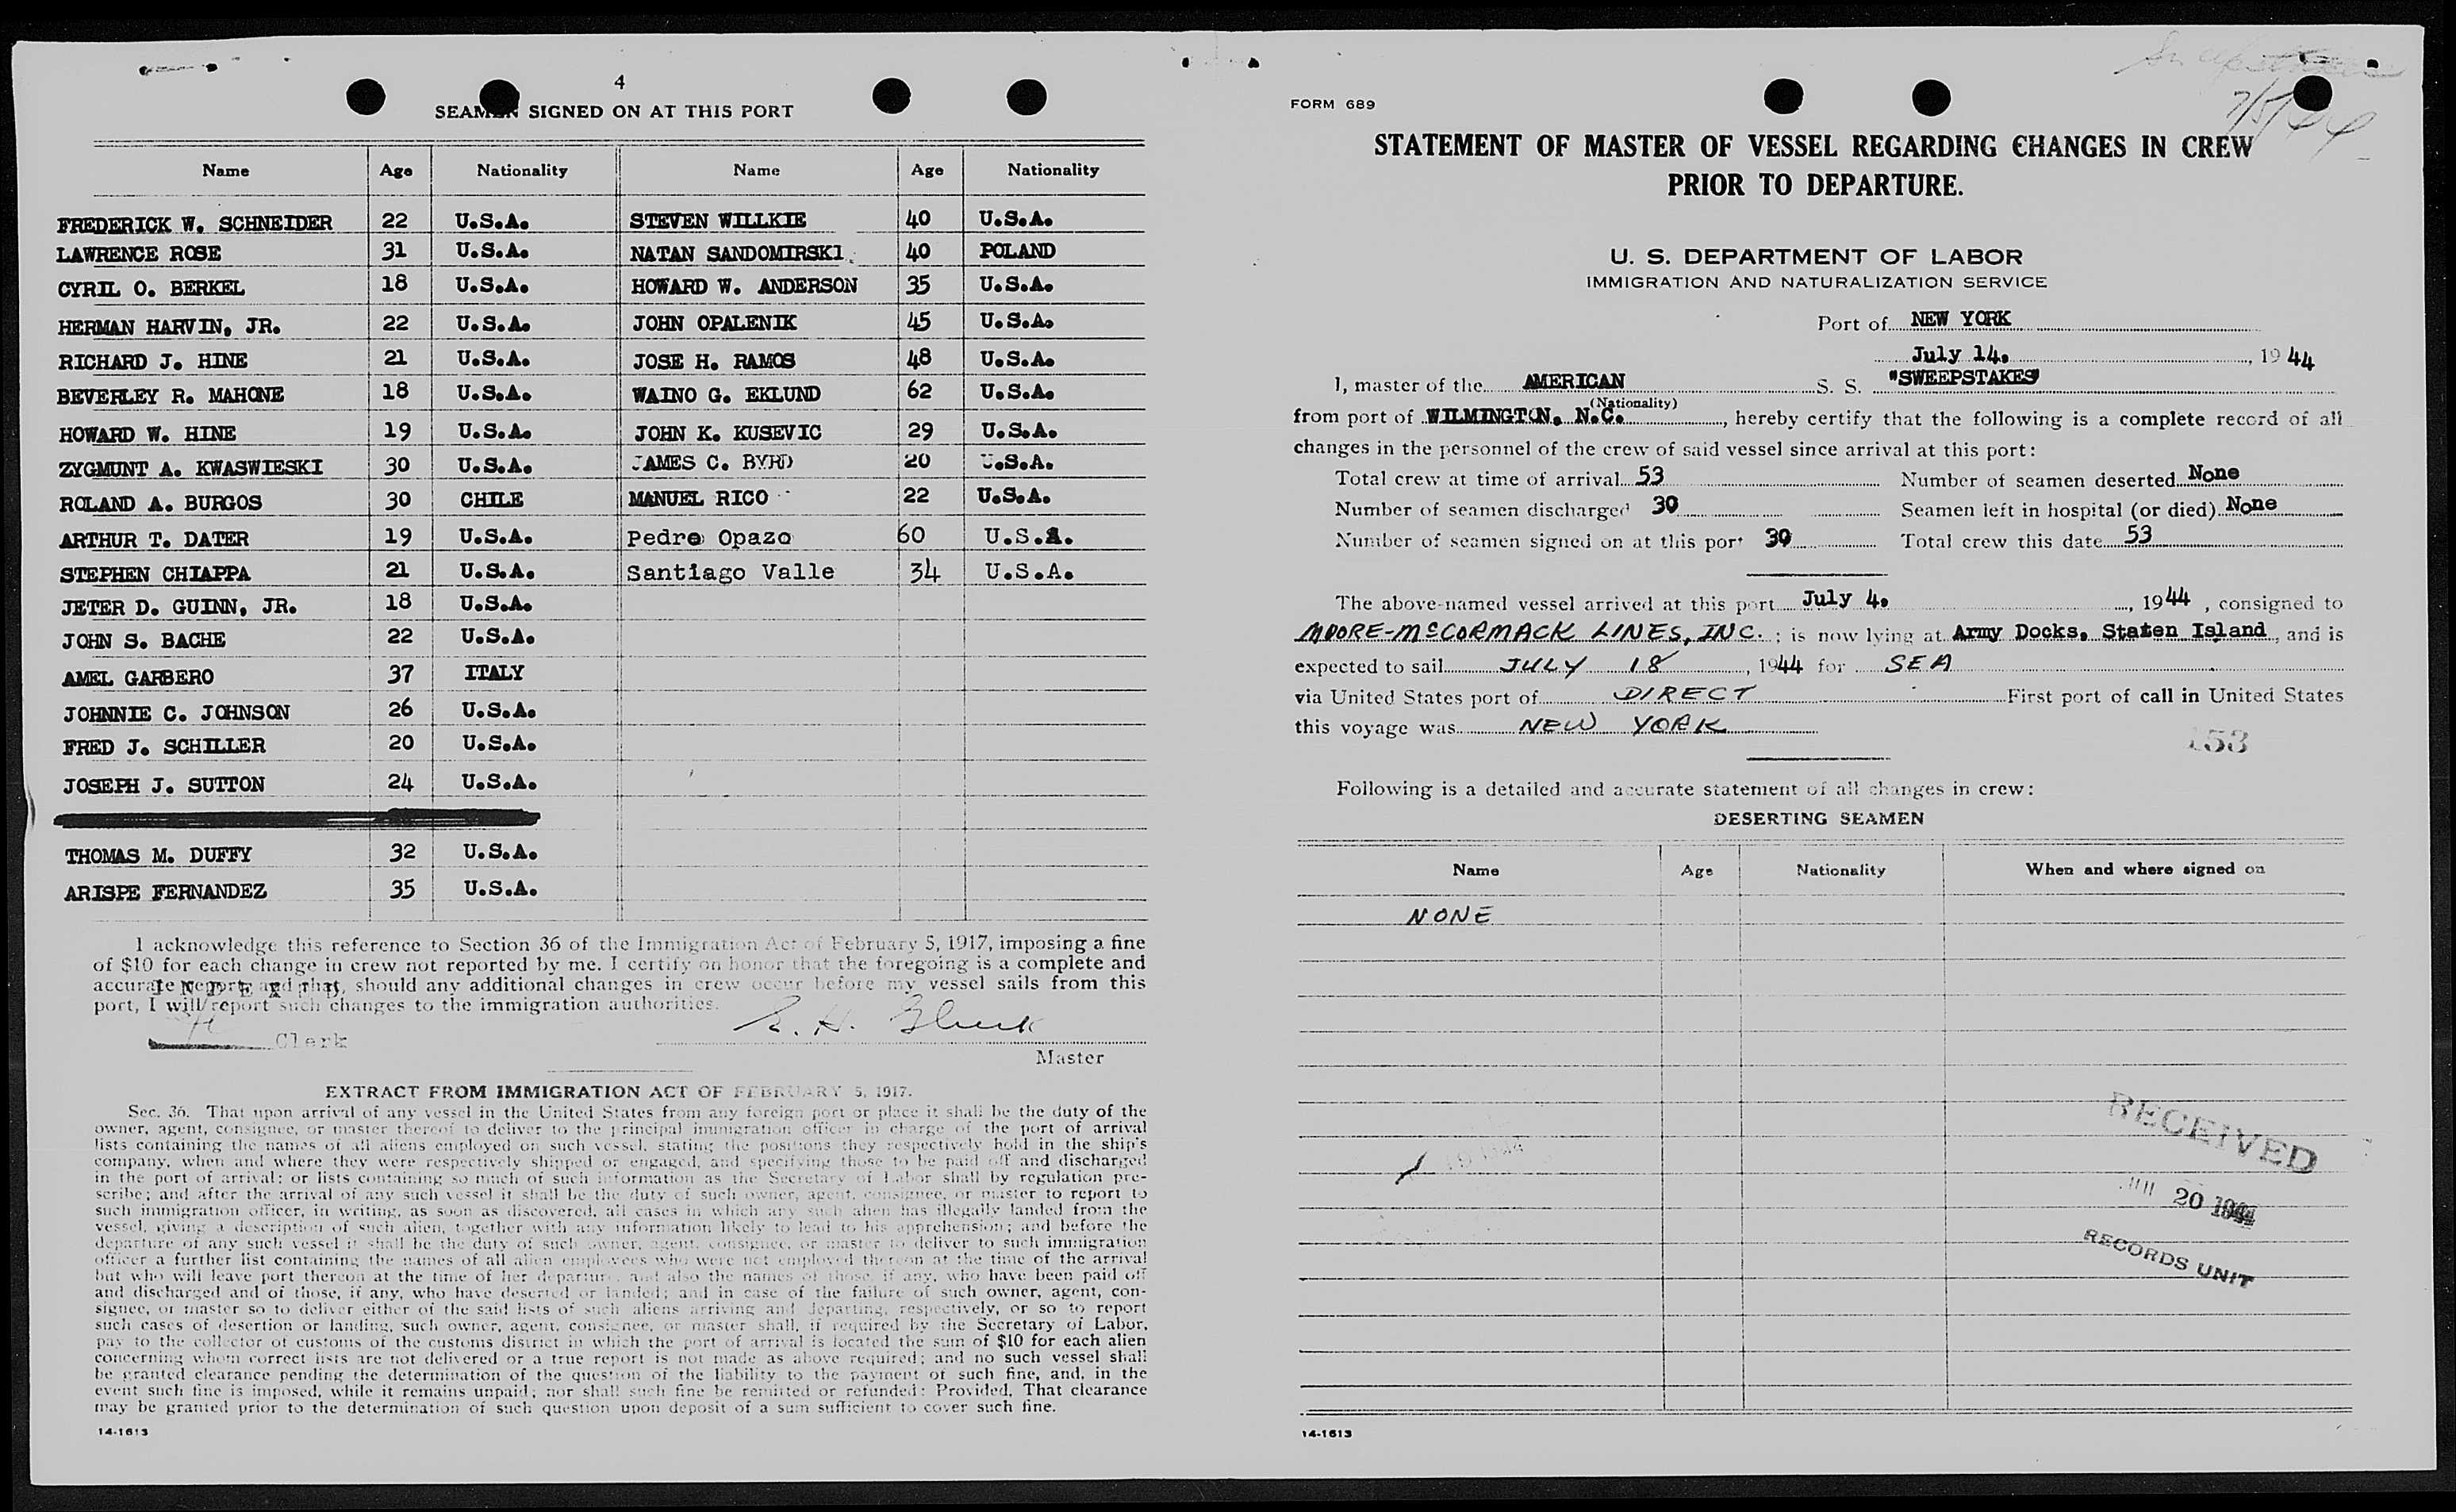 4
SEAMEN SIGNED ON AT THIS PORT
Name Age Nationality Name Age Nationality
FREDERICK W. SCHNEIDER 22 U.S.A. STEVEN WILLKIE 40 U.S.A.
LAWRENCE ROSE 31 U.S.A. NATAN SANDOMIRSKI 40 POLAND
CYRIL O. BERKEL 18 U.S.A. HOWARD W. ANDERSON 35 U.S.A.
HERMAN HARVIN, JR. 22 U.S.A. JOHN OPALENIK 45 U.S.A.
RICHARD J. HINE 21 U.S.A. JOSE H. RAMOS 48 U.S.A.
BEVERLEY R. MAHONE 18 U.S.A. WAINO G. EKLUND 62 U.S.A.
HOWARD W. HINE 19 U.S.A. JOHN K. KUSEVIC 29 U.S.A.
ZYGMUNT A. KWASWIESKI 30 U.S.A. JAMES C. BYRD 20 U.S.A.
ROLAND A. BURGOS 30 CHILE MANUEL RICO 22 U.S.A.
ARTHUR T. DATER 19 U.S.A. Pedro Opazo 60 U.S.A.
STEPHEN CHIAPPA 21 U.S.A. Santiago Valle 34 U.S.A.
JETER D. GUINN, JR. 18 U.S.A.
JOHN S. BACHE 22 U.S.A.
AMEL GARBERO 37 ITALY
JOHNNIE C. JOHNSON 26 U.S.A.
FRED J. SCHILLER 20 U.S.A.
JOSEPH J. SUTTON 24 U.S.A.
THOMAS M. DUFFY 32 U.S.A.
ARISPE FERNANDEZ 35 U.S.A.
I acknowledge this reference to Section 36 of the Immigration Act of February 5, 1917, imposing a fine
of $10 for each change in crew not reported by me. I certify on honor that the foregoing is a complete and
accurate report, and that, should any additional changes in crew occur before my vessel sails from this
port, I will report such changes to the immigration authorities.
INDEXED
Clerk
Master
EXTRACT FROM IMMIGRATION ACT OF FEBRUARY 5, 1917.
Sec. 36. That upon arrival of any vessel in the United States from any foreign port or place it shall be the duty of the
owner, agent, consignee, or master thereof to deliver to the principal immigration officer in charge of the port of arrival
lists containing the names of all aliens employed on such vessel, stating the positions they respectively hold in the ship's
company, when and where they were respectively shipped or engaged, and specifying those to be paid off and discharged
in the port of arrival; or lists containing so much of such information as the Secretary of Labor shall by regulation pre-
scribe; and after the arrival of any such vessel it shall be the duty of such owner, agent, consignee, or master to report to
such immigration officer, in writing, as soon as discovered, all cases in which any such alien has illegally landed from the
vessel, giving a description of such alien, together with any information likely to lead to his apprehension; and before the
departure of any such vessel it shall be the duty of such owner, agent, consignee, or master to deliver to such immigration
officer a further list containing the names of all alien employees who were not employed thereon at the time of the arrival
but who will leave port thereon at the time of her departure, and also the names of those, if any, who have been paid off
and discharged and of those, if any, who have deserted or landed; and in case of the failure of such owner, agent, con-
signee, or master so to deliver either of the said lists of such aliens arriving and departing, respectively, or so to report
such cases of desertion or landing, such owner, agent, consignee, or master shall, if required by the Secretary of Labor,
pay to the collector of customs of the customs district in which the port of arrival is located the sum of $10 for each alien
concerning whom correct lists are not delivered or a true report is not made as above required; and no such vessel shall
be granted clearance pending the determination of the question of the liability to the payment of such fine, and, in the
event such fine is imposed, while it remains unpaid; nor shall such fine be remitted or refunded: Provided, That clearance
may be granted prior to the determination of such question upon deposit of a sum sufficient to cover such fine.
14-1613
Sweepstakes
7/5/44
FORM 689
STATEMENT OF MASTER OF VESSEL REGARDING CHANGES IN CREW
PRIOR TO DEPARTURE.
U. S. DEPARTMENT OF LABOR
IMMIGRATION AND NATURALIZATION SERVICE
Port of NEW YORK
July 14, 1944
I, master of the AMERICAN S. S. "SWEEPSTAKES"
(Nationality)
from port of WILMINGTON, N.C., hereby certify that the following is a complete record of all
changes in the personnel of the crew of said vessel since arrival at this port:
Total crew at time of arrival 53 Number of seamen deserted None
Number of seamen discharged 30 Seamen left in hospital (or died) None
Number of seamen signed on at this port 30 Total crew this date 53
The above-named vessel arrived at this port July 4, 1944, consigned to
MOORE-McCORMACK LINES, INC.; is now lying at Army Docks, Staten Island, and is
expected to sail JULY 18, 1944 for SEA
via United States port of DIRECT First port of call in United States
this voyage was NEW YORK
153
Following is a detailed and accurate statement of all changes in crew:
DESERTING SEAMEN
Name Age Nationality When and where signed on
NONE
RECEIVED
JUL 20 1944
RECORDS UNIT
14-1613